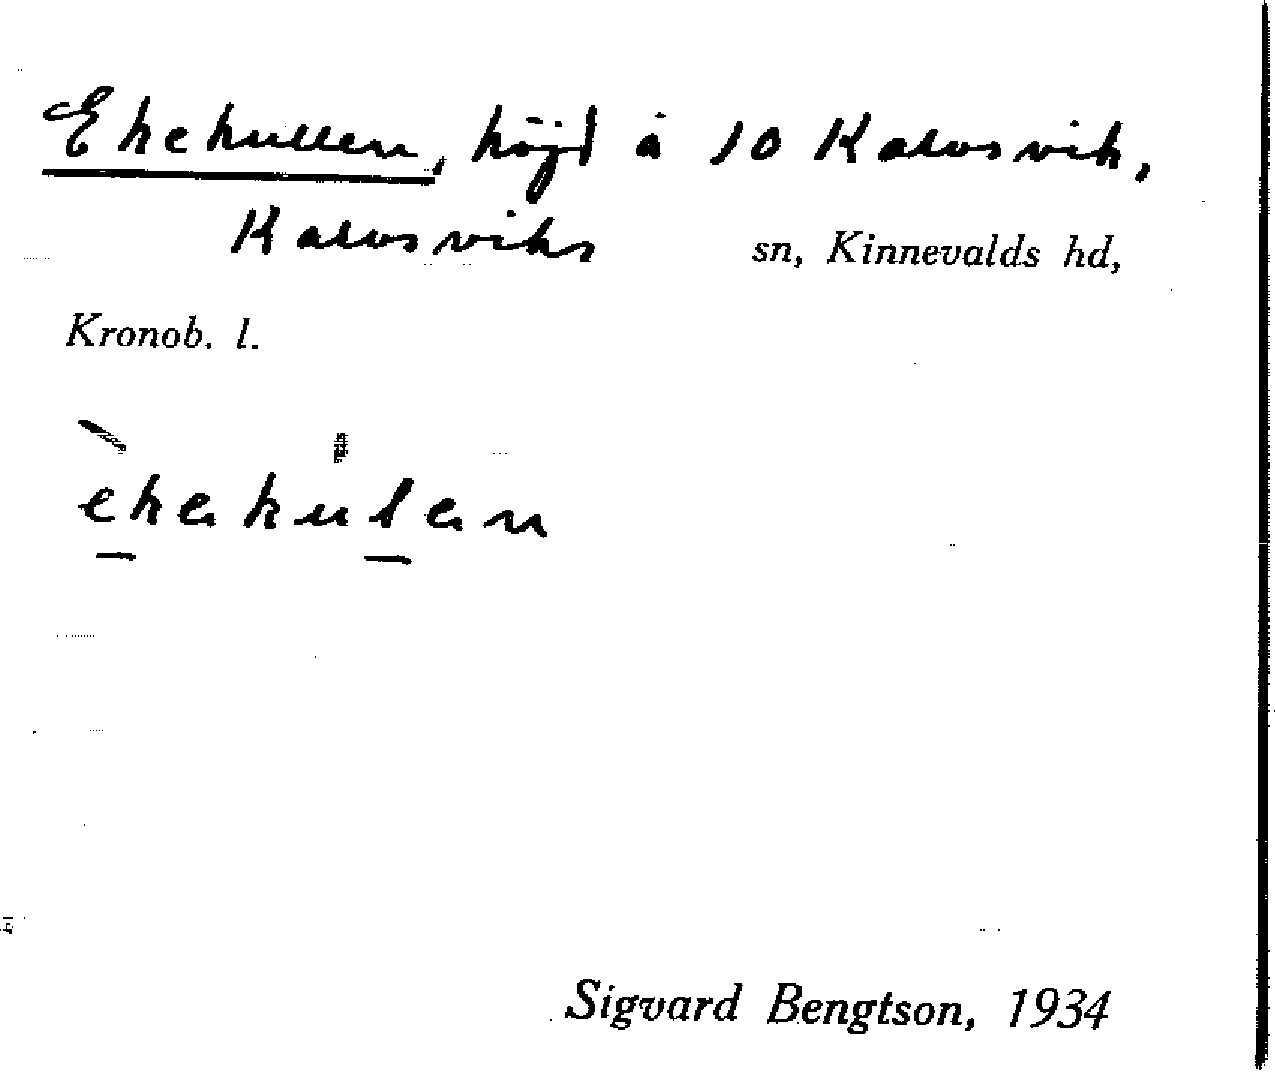 Ekekullen, höjd å 10 Kalvsvik,
Kalvsviks sn, Kinnevalds hd,
Kronob. l.
ekəkulən
Sigvard Bengtson, 1934